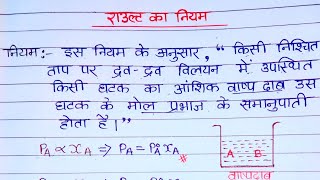 राउल्ट का नियम
नियम:- इस नियम के अनुसार, “ किसी निश्चित
ताप पर द्रव-द्रव विलयन में उपस्थित
किसी घटक का आंशिक वाष्प दाब उस
घटक के मोल प्रभाज के समानुपाती
होता है। ”
A B
P_A ∝ x_A ⇒ P_A = P_A° x_A
वाष्पदाब